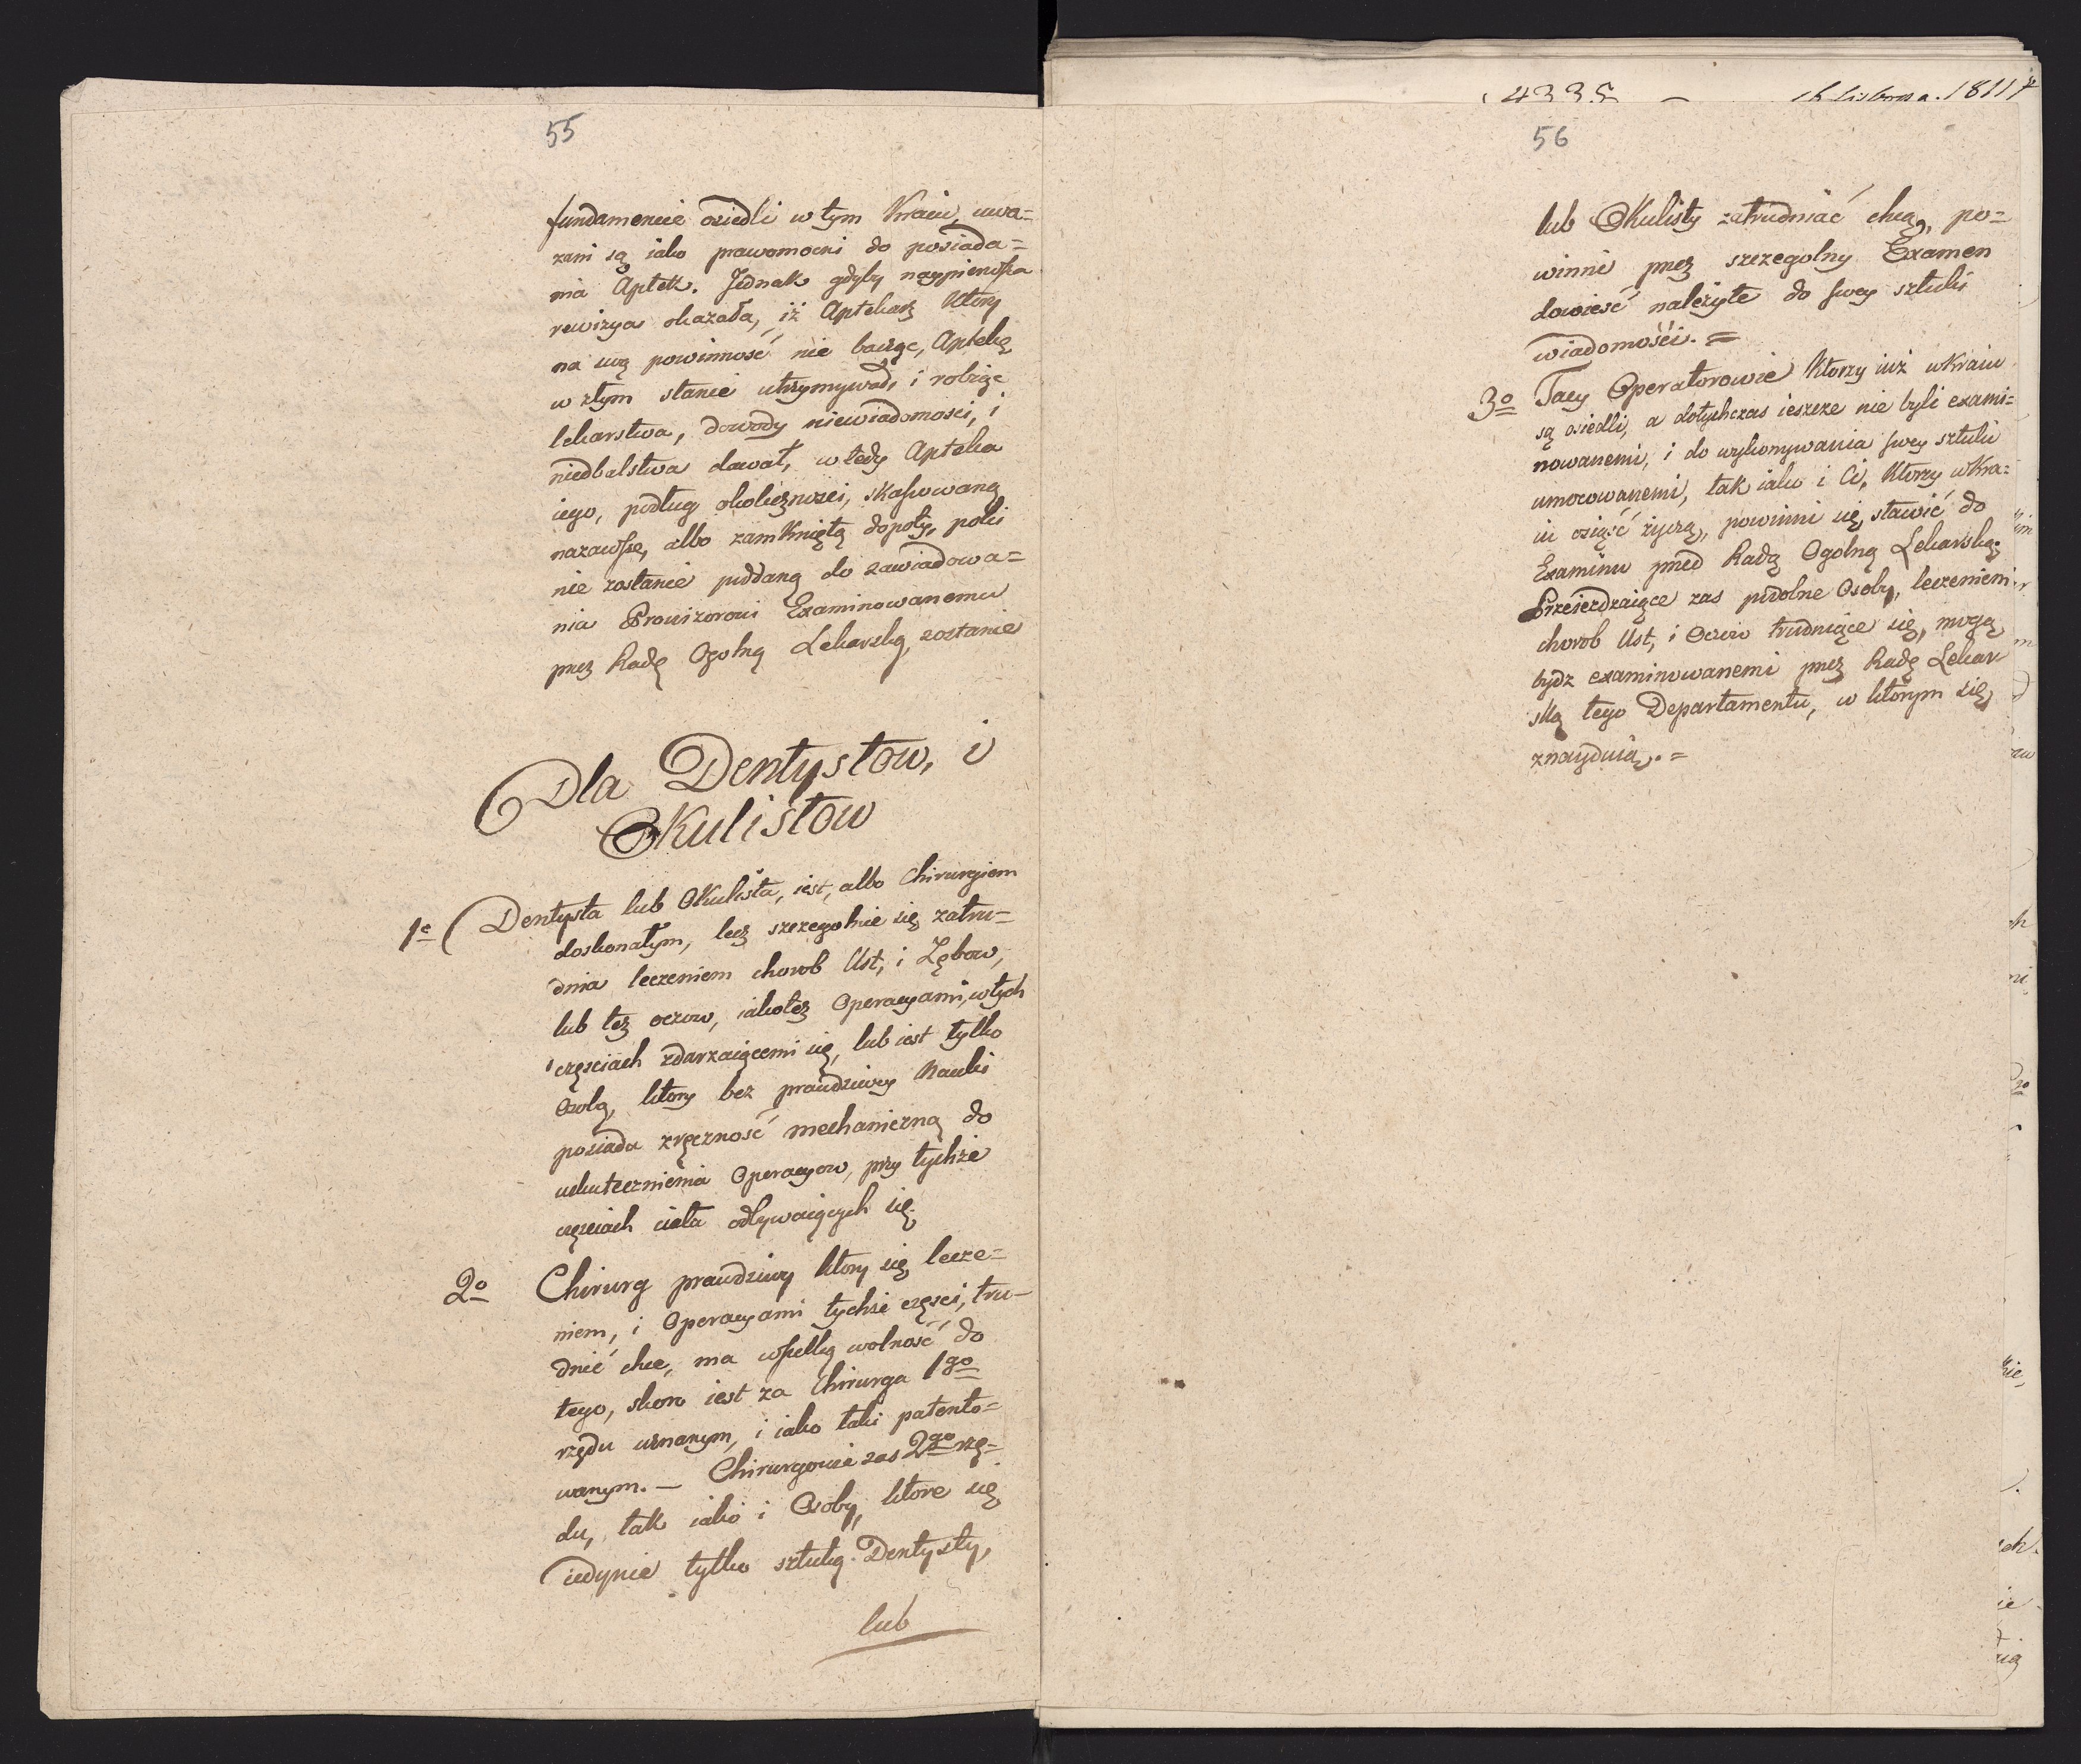 55
fundamencie osiedli w tym Kraiu, uwa=
zani są iako prawomocni do posiada=
nia Aptek. Jednak gdyby naypierwsza
rewizya okazała, iż Aptekarz Ktory
na swą powinność nie bacząc, Aptekę
w złym stanie utrzymywał, i robiąc
lekarstwa, dowody niewiadomosci, i
niedbalstwa dawał, w tedy Apteka
iego, podług okolicznosci, skassowaną
nazawsze, albo zamkniętą dopoty, poki
nie zostanie poddaną do zawiadowa=
nia Prowizorowi Examinowanemu
przez Radę Ogolną Lekarską, zostanie
Dla Dentystow, i
Okulistow
1e Dentysta lub Okulista, iest, albo Chirurgiem
doskonałym, lecz szczegolnie się zatru=
dnia leczeniem chorob Ust, i Zębow,
lub też oczow, iakoteż Operacyami, w tych
częsciach zdarzaiącemi się, lub iest tylko
Osobą, ktory bez prawdziwey Nauki
posiada zręczność mechaniczną do
uskutecznienia Operacyow, przy tychże
częsciach ciała odbywaiących się.
2o Chirurg prawdziwy ktory się lecze=
niem, i Operacyami tychże częsci, tru=
dnić chce, ma wszelką wolność do
tego, skoro iest za Chirurga 1go
rzędu uznanym, i iako taki patento=
wanym. — Chirurgowie zas 2go rzę=
du, tak iako i Osoby, ktore się
iedynie tylko sztuką Dentysty,
lub
4335 — 1811
56
lub Okulisty zatrudniać chcą, po=
winni przez szczegolny Examen
dowieść należyte do swey sztuki
wiadomości. =
3o Tacy Operatorowie Ktorzy iuż w Kraiu
są osiedli, a dotychczas ieszcze nie byli exami=
nowanemi, i do wykonywania swey sztuki
umocowanemi, tak iako i Ci, Ktorzy w Kra=
iu osiąść życzą, powinni się stawić do
Examinu przed Radą Ogolną Lekarską.
Przeieżdzaiące zas podobne Osoby, leczeniem
chorob Ust, i Oczow trudniące się, mogą
bydz examinowanemi przez Radę Lekar
ską tego Departamentu, w ktorym się
znayduią. =